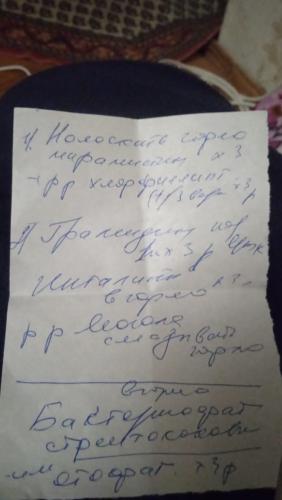 1/ Полоскать горло
мирамистин х 3
р р хлорфиллипт
х 3 р
2/ Граммидин
1т х 3 р
Ингалипт х 3
в горло
р р Люголя
смазывать
горло
Бактериофаг
стрептококовый
х 3 р